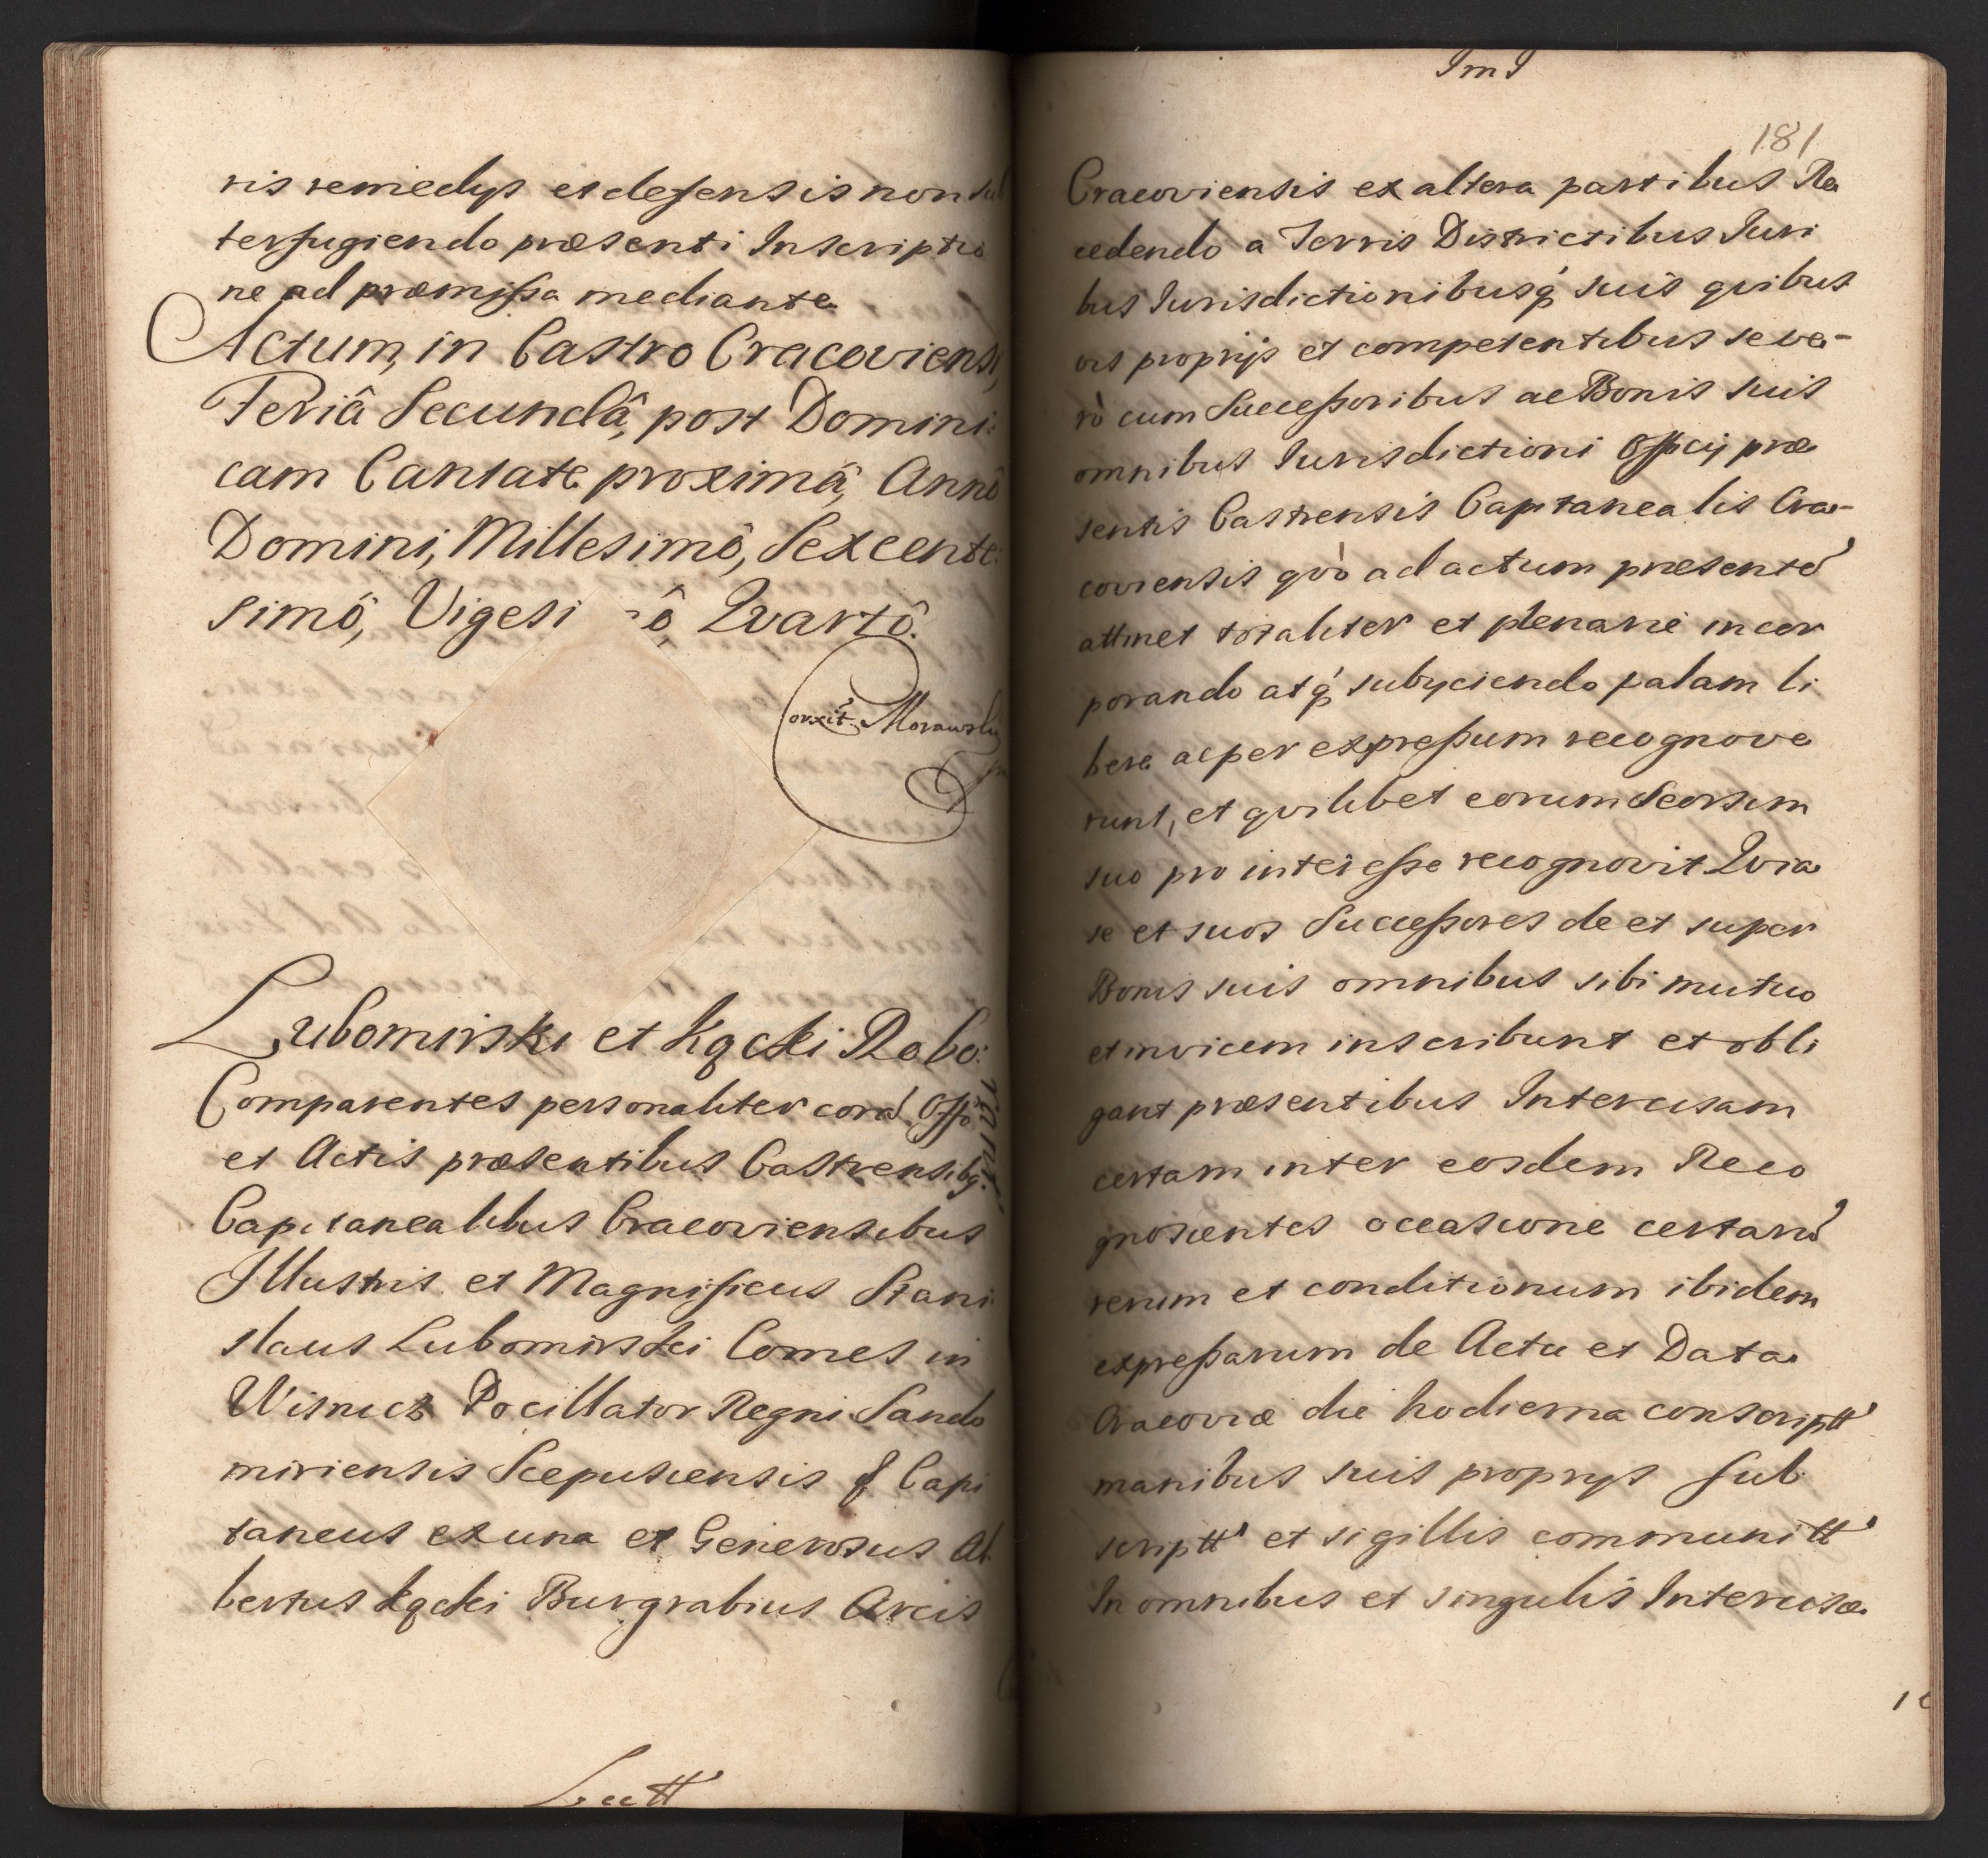 ris remedys et defensis non sub
terfugiendo præsenti Inscriptio
ne ad præmissa mediante
Actum, in Castro Cracoviensi,
Feriâ Secundâ, post Domini:
cam Cantate proximâ, Annô
Domini, Millesimô, Sexcente:
simô, Vigesi ô, Quartô.
orxit Morawski
Lubomirski et Kącki Robo:
Comparentes personaliter corã Offo
et Actis præsentibus Castrensibq
Capitanealibus Cracoviensibus
Illustris et Magnificus Stani
slaus Lubomirski Comes in
Wisnicz Pocillator Regni Sando
miriensis Scepusiensis Capi
taneus ex una et Generosus Al
bertus Kącki Burgrabius Arcis
Lectt
ImI
181
Cracoviensis ex altera partibus Re
cedendo a Terris Districtibus Iuri
bus Iurisdictionibusq suis quibus
vis proprijs et competentibus seve-
rò cum Successoribus ac Bonis suis
omnibus Iurisdictioni Officij præ
sentis Castrensis Capitanealis Cra-
coviensis quò ad actum præsente
attinet totaliter et plenarie incor
porando atq subyciendo palam li
bere ac per expressum recognove
runt, et quilibet eorum Seorsim
suo pro interesse recognovit Quia
se et suos Successores de et super
Bonis suis omnibus sibi mutuo
et invicem inscribunt et obli
gant præsentibus Intercisam
certam inter eosdem Reco
gnoscentes occasione certaru
rerum et conditionum ibidem
expressarum de Actu et Data
Cracoviæ die hodierna conscriptt
manibus suis proprys sub
scriptt et sigillis communitt
In omnibus et singulis Intercisæ